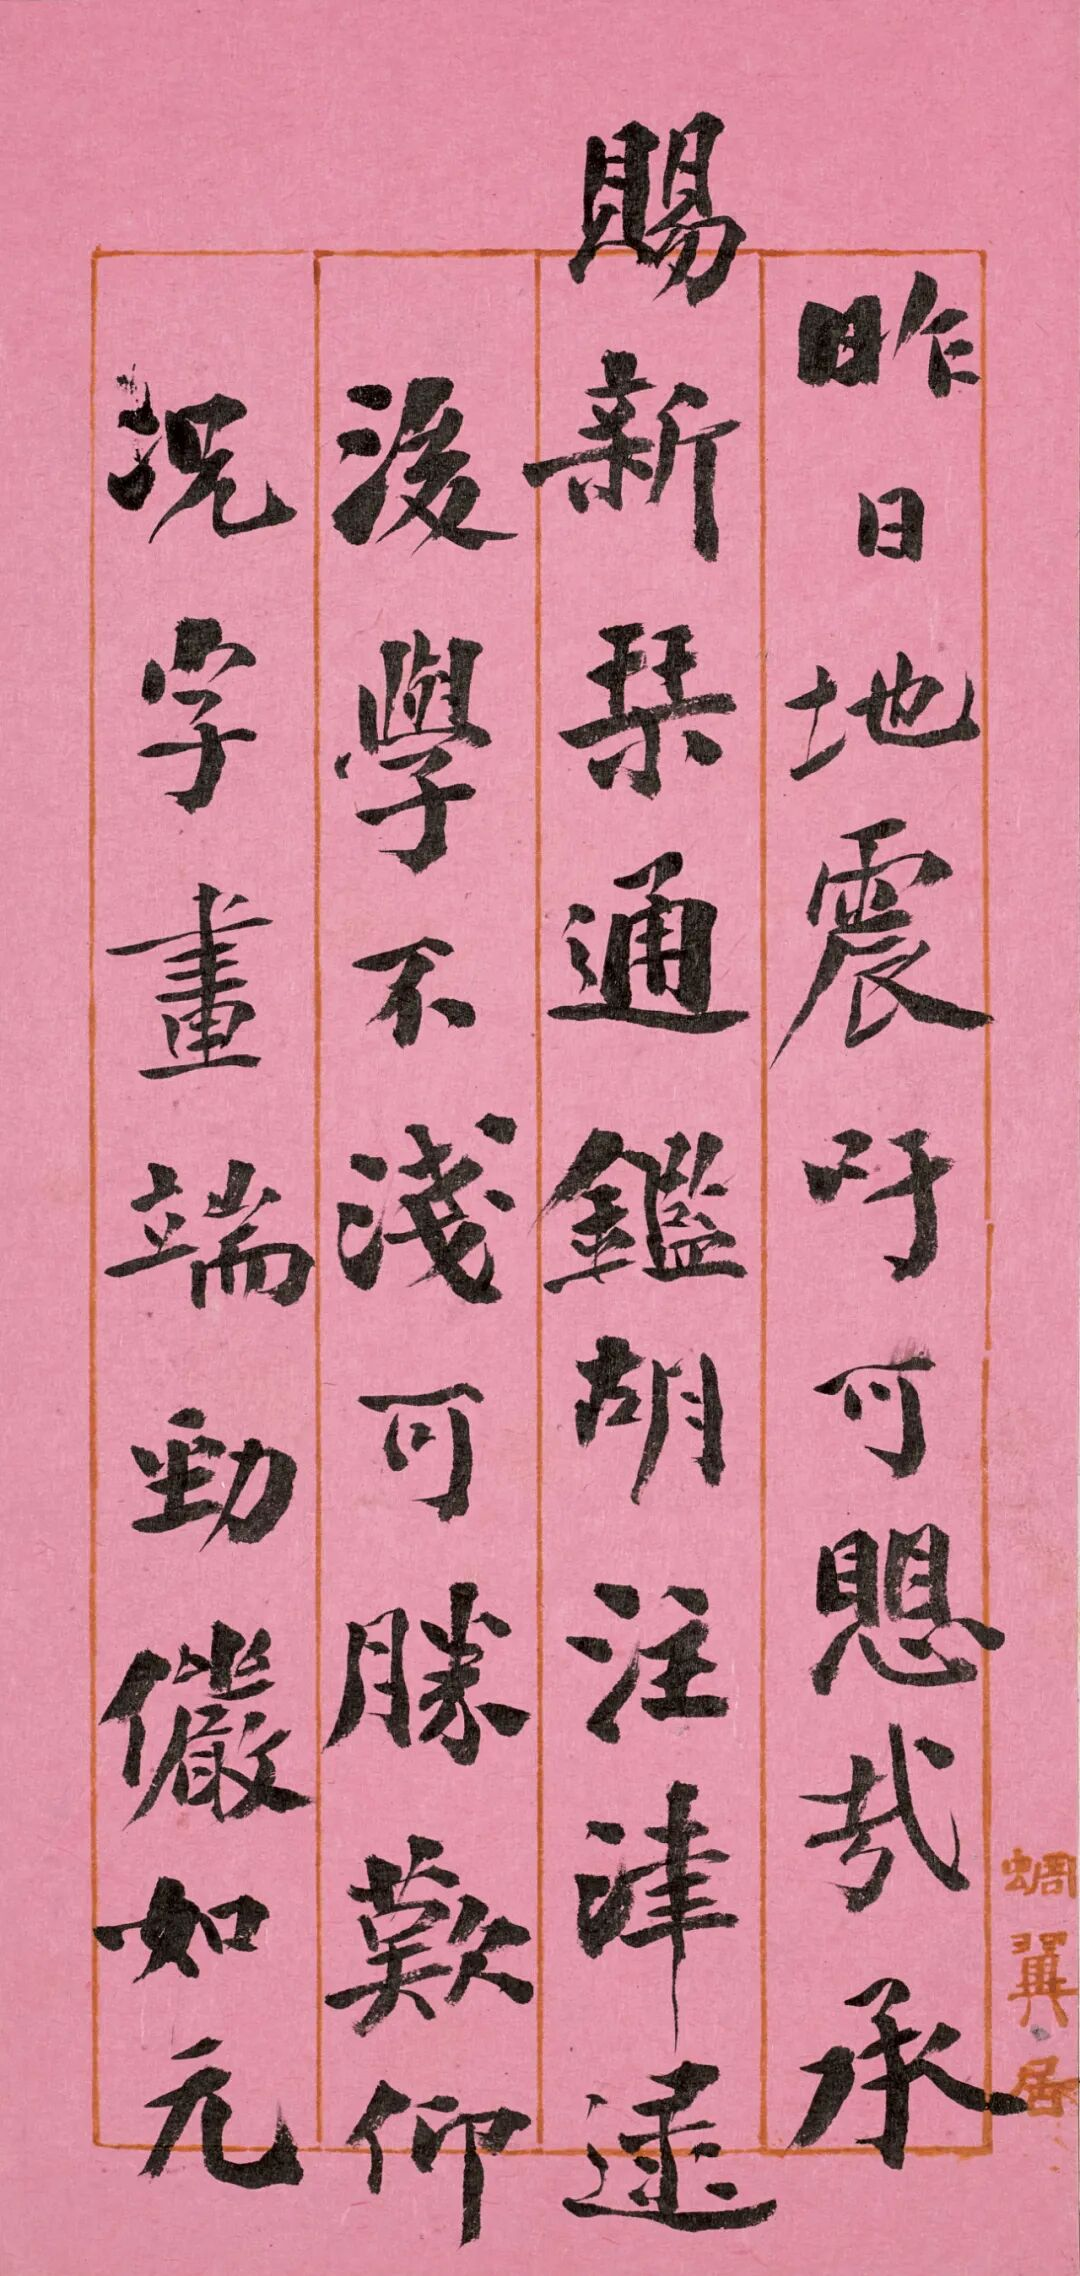 昨日地震吁可愳哉承
賜新栞通鑑胡注津逮
後學不淺可勝歎仰
況字畫端勁儼如元
蜩翼居